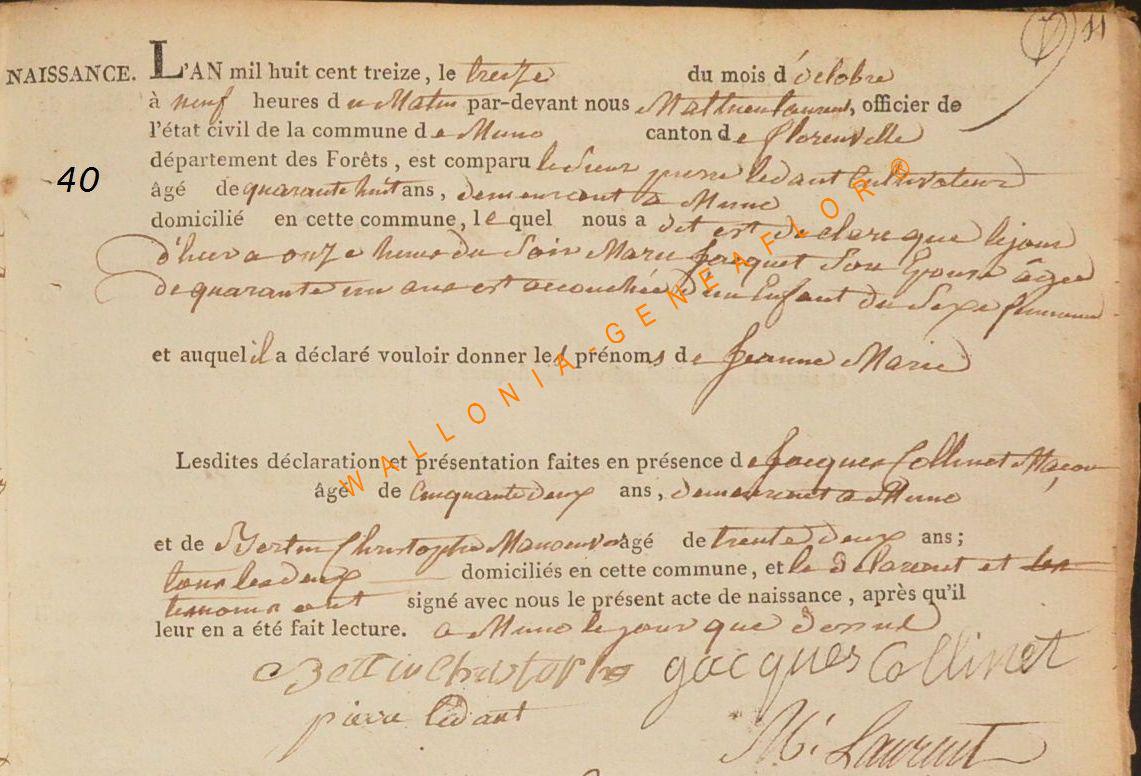 11
NAISSANCE. L'AN mil huit cent treize, le treize du mois d'octobre
à neuf heures du Matin par-devant nous Mathieu Laurent, officier de
l'état civil de la commune de Muno canton de florenville
département des Forêts, est comparu le Sieur pierre ledant Cultivateur
40
âgé de quarante huit ans, demeurant a Muno
domicilié en cette commune, lequel nous a dit et declare que le jour
d'hier a onze heures du Soir Marie Jacquet Son Epouse âgée
de quarante un ans est accouchée d'un Enfant du Sexe feminin
et auquel il a déclaré vouloir donner les prénoms de Jeanne Marie
Lesdites déclaration et présentation faites en présence de Jacques Collinet Maçon
âgé de Cinquante deux ans, demeurant a Muno
et de Bertin Christophe Manoeuvre âgé de trente deux ans;
tous les deux domiciliés en cette commune, et le declarant et les
temoins ont signé avec nous le présent acte de naissance, après qu'il
leur en a été fait lecture. a Muno le jour que dessus
Bertin Christophe Jacques Collinet
pierre ledant
M. Laurent
WALLONIA-GENEAFLOR ®